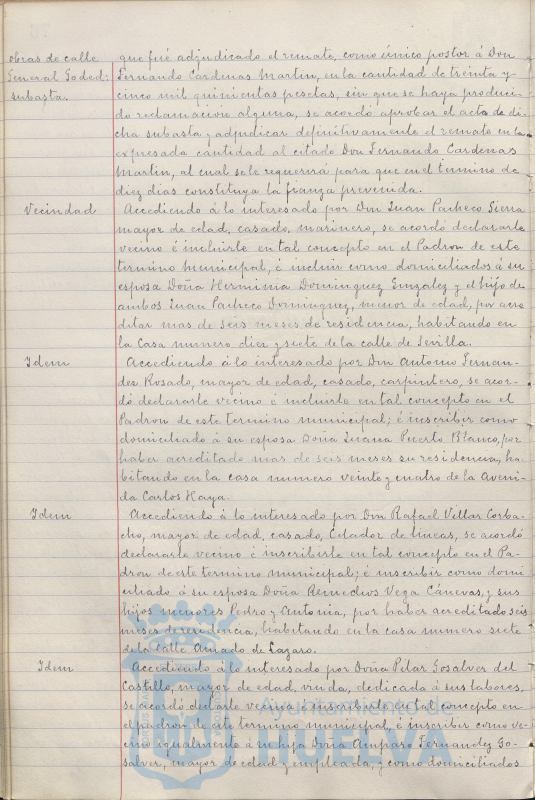 obras de calle
General Goded:
subasta.
que fué adjudicado el remate, como único postor á Don
Fernando Cardenas Martin, en la cantidad de treinta y
cinco mil quinientas pesetas, sin que se haya produci-
do reclamación alguna, se acordó aprobar el acta de di-
cha subasta y adjudicar definitivamente el remate en la
expresada cantidad al citado Don Fernando Cardenas
Martin, al cual se le requerirá para que en el término de
diez dias constituya la fianza prevenida.
Vecindad
Accediendo á lo interesado por Don Juan Pacheco Sierra
mayor de edad, casado, marinero, se acordó declararle
vecino é incluirle en tal concepto en el Padron de este
termino municipal, é incluir como domiciliados á su
esposa Doña Herminia Dominguez Gonzalez y el hijo de
ambos Juan Pacheco Dominguez, menor de edad, por acre
ditar mas de seis meses de residencia, habitando en
la Casa numero diez y siete de la calle de Sevilla.
Idem
Accediendo á lo interesado por Don Antonio Fernan-
dez Rosado, mayor de edad, casado, carpintero, se acor-
dó declararle vecino é incluirle en tal concepto en el
Padron de este termino municipal; é inscribir como
domiciliado á su esposa Doña Juana Puerto Blanco, por
haber acreditado mas de seis meses su residencia, ha-
bitando en la casa numero veinte y cuatro de la Aveni-
da Carlos Haya.
Idem
Accediendo á lo interesado por Don Rafael Vellar Corba-
cho, mayor de edad, casado, Celador de lineas, se acordó
declararle vecino é inscribirle en tal concepto en el Pa-
dron de este termino municipal; é inscribir como domi
ciliado á su esposa Doña Remedios Vega Cánovas, y sus
hijos menores Pedro y Antonia, por haber acreditado seis
meses de residencia, habitando en la casa numero siete
de la Calle Amado de Lazaro.
Idem
Accediendo á lo interesado por Doña Pilar Gosalver del
Castillo, mayor de edad, viuda, dedicada á sus labores,
se acordó declararle vecina é inscribirle en tal concepto en
el padron de este termino municipal, é inscribir como ve-
cino igualmente á su hija Doña Amparo Fernandez Go-
salver, mayor de edad y empleada, y como domiciliados
Ayuntamiento
HUELVA